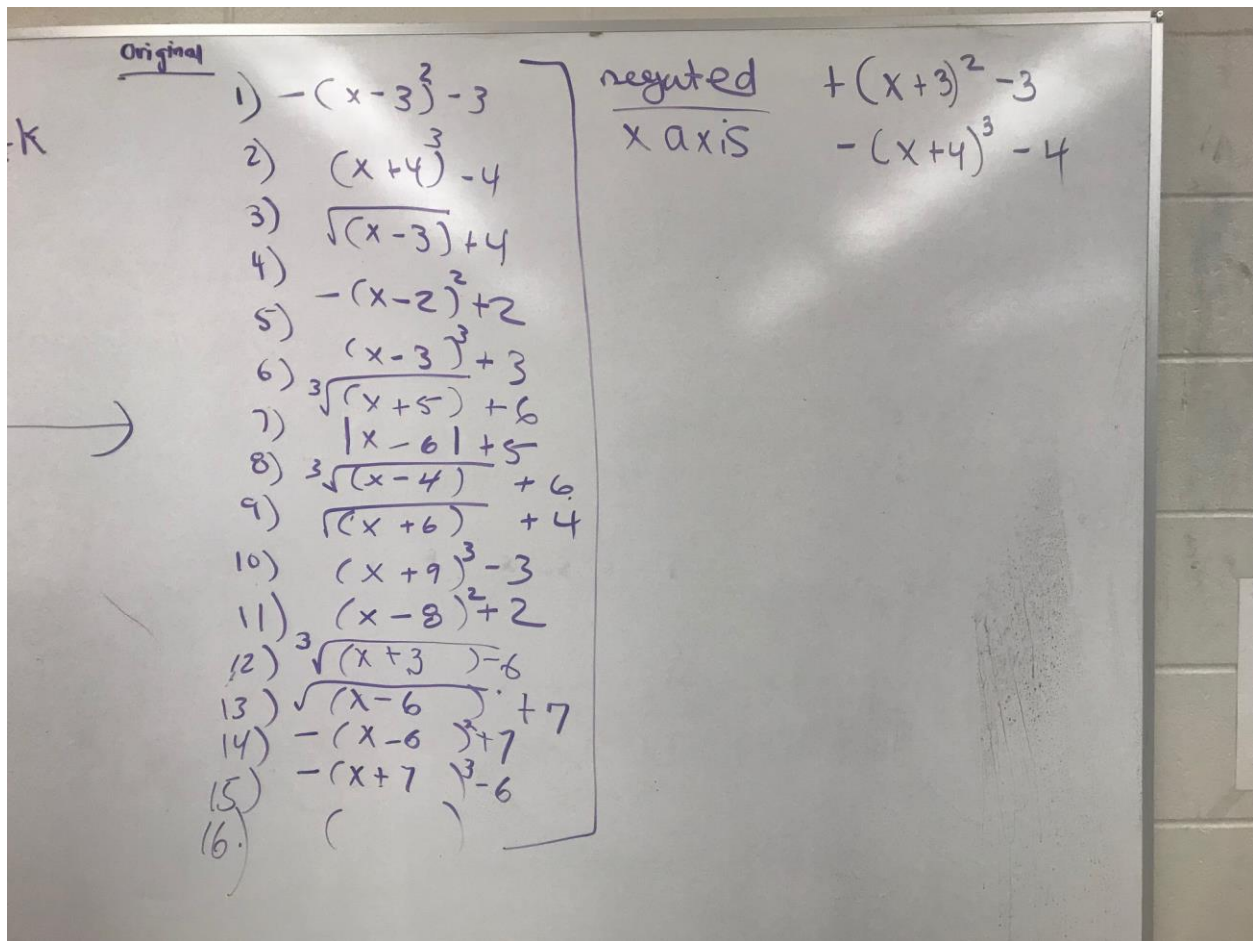 Original
-k
1) -(x-3)²-3
2) (x+4)³-4
3) √(x-3)+4
4) -(x-2)²+2
5) (x-3)³+3
6) ³√(x+5) +6
7) |x-6|+5
8) ³√(x-4) +6
9) √(x+6) +4
10) (x+9)³-3
11) (x-8)²+2
12) ³√(x+3 )-6
13) √(x-6 ) +7
14) -(x-6 )²+7
15) -(x+7 )³-6
16.) ( )
negated +(x+3)²-3
x axis -(x+4)³-4